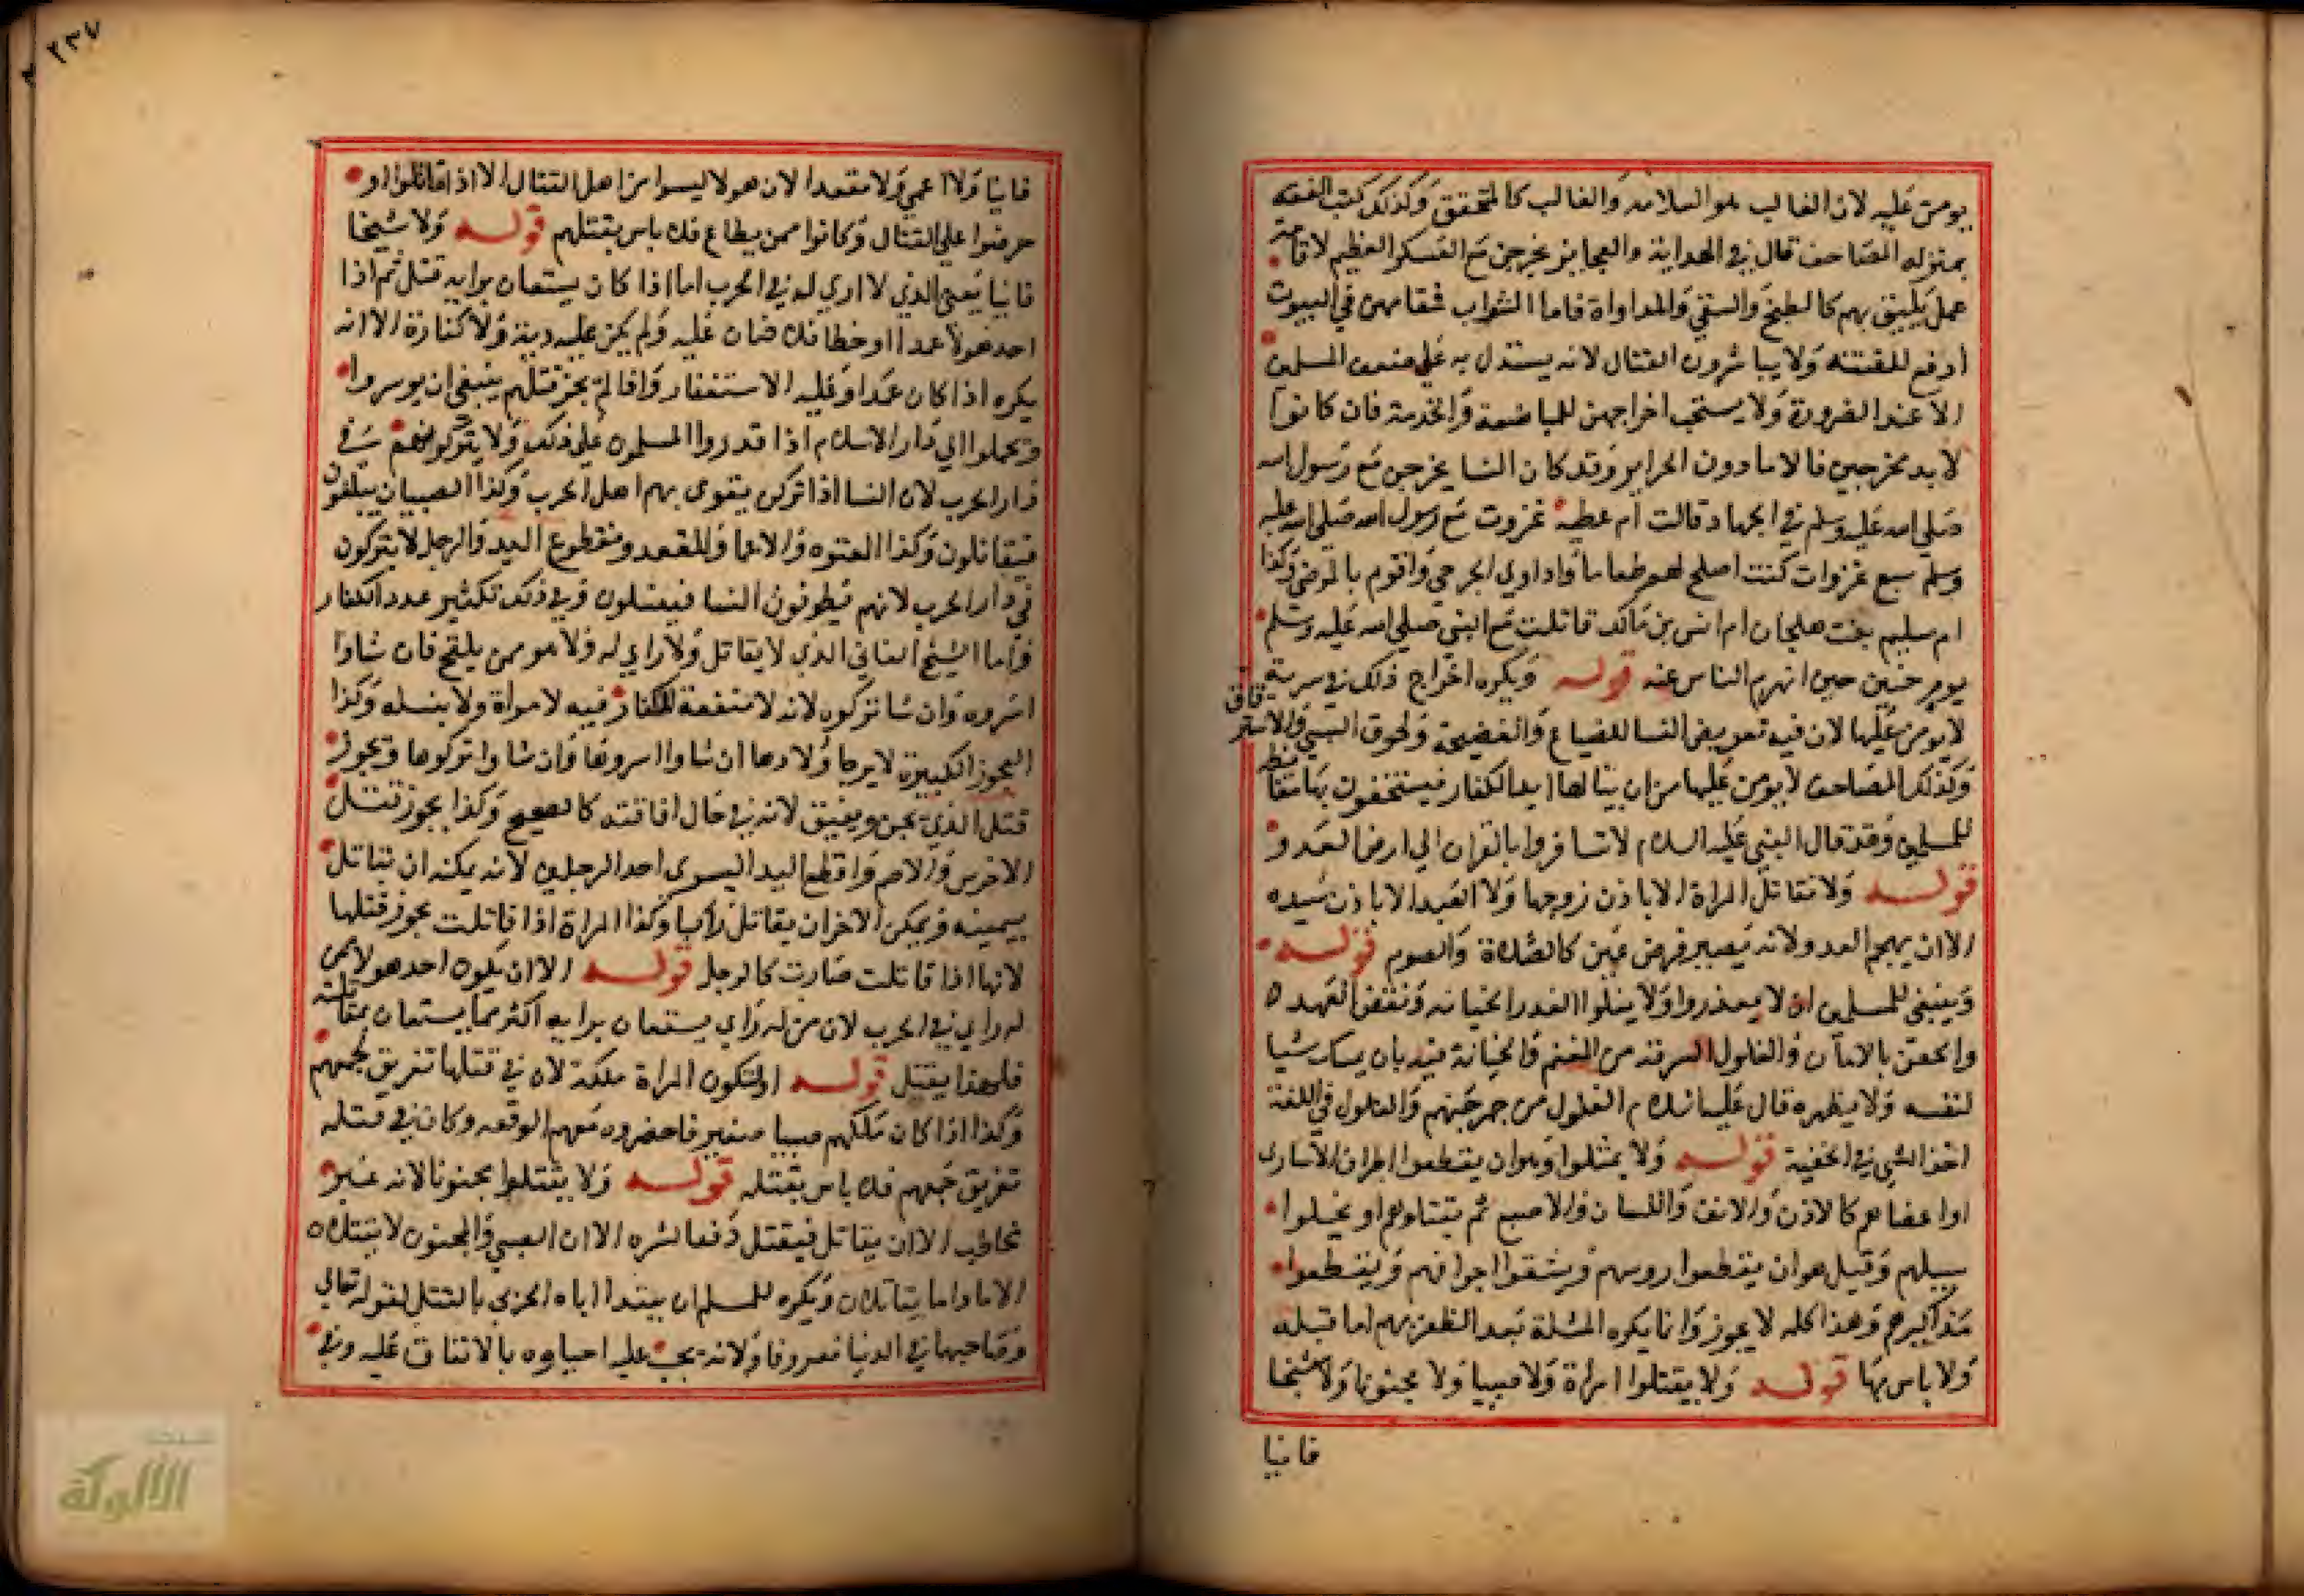 يومن عليه لان الغالب هو السلامه والغالب كالمتحقق وكذلك كتب الفقه
بمنزله المصاحف قال في الهداية والعجايز يخرجن مع العسكر العظيم لاقامة
عمل يليق بهم كالطبخ والسقي والمداواة فاما الشواب فمقامهن في البيوت
ادفع للفتنه ولا يباشرون القتال لانه يستدل به على ضعف المسلمين
الا عند الضرورة ولا يستحب اخراجهن للمباضعة والخدمة فان كانوا
لا بد مخرجين فالاما دون الحراير وقد كان النسا يخرجن مع رسول الله
صلى الله عليه وسلم في الجهاد قالت ام عطية غزوت مع رسول الله صلى الله عليه
وسلم سبع غزوات كنت اصلح لهم طعاما واداوي الجرحي واقوم بالمرضى وكذا
ام سليم بنت ملحان ام انس بن مالك قاتلت مع النبي صلى الله عليه وسلم
يوم حنين حين انهزم الناس عنه قوله ويكره اخراج ذلك في سرية
لا يومن عليها لان فيه تعريض النسا للضياع والفضيحة ولحوق السبي والاسترقاق
وكذلك المصاحف لا يومن عليها من ان ينالها ايد الكفار فيستخفون بها مغايظة
للمسلمين وقد قال النبي عليه السلام لا تسافروا بالقران الي ارض العدو
قوله ولا تقاتل المراة الا باذن زوجها ولا العبد الا باذن سيده
الا ان يهجم العدو لانه يصير فرض عين كالصلاة والصوم قوله
وينبغي للمسلمين ان لا يغدروا ولا يغلوا الغدر الخيانه ونقض العهد
والحق بالامان والغلول السرقه من المغنم والخيانة فيه بان يمسك شيا
لنفسه ولا يظهره قال عليه السلام الغلول من جمر جهنم والغلول في اللغة
اخذ الشي في الخفية قوله ولا يمثلوا وهو ان يقطعوا اطراف الاسارى
او اعضاهم كالاذن والانف واللسان والاصبع ثم يقتلوهم او يخلوا
سبيلهم وقيل هو ان يقطعوا روسهم ويشقوا اجوافهم ويقطعوا
مذاكيرهم وهذا كله لا يجوز وانما يكره المثلة بعد الظفر بهم اما قبله
ولا باس بها قوله ولا يقتلوا امراة ولا صبيا ولا مجنونا ولا شيخا
فانيا
٢٣٧
فانيا ولا اعمي ولا مقعدا لان هولا ليسوا من اهل القتال الا اذا قاتلوا او
حرضوا علي القتال وكانوا ممن يطاع فلا باس بقتلهم قوله ولا شيخا
فانيا يعني الذي لا راي له في الحرب اما اذا كان يستعان برايه قتل ثم اذا
احد هولا عمدا او خطا فلا ضمان عليه ولم يكن عليه دية ولا كفارة الا انه
يكره اذا كان عمدا وعليه الاستغفار واذا لم يجز قتلهم ينبغي ان يوسروا
وتحملوا الي دار الاسلام اذا قدروا المسلمون علي ذلك ولا يتركونهم في
دار الحرب لان النسا اذا تركن يتقوى بهم اهل الحرب وكذا الصبيان يبلغون
فيقاتلون وكذا المعتوه والاعما والمقعد ومقطوع اليد والرجل لا يتركون
في دار الحرب لانهم يطوفون النسا فينسلون وفي ذلك تكثير عدد الكفار
واما الشيخ الفاني الذي لا يقاتل ولا راي له ولا هو ممن يلقح فان شاوا
اسروه وان شا تركوه لانه لا منفعة للكفار فيه لا مواة ولا بنسله وكذا
العجوز الكبيرة لا يرجا ولادها ان شاوا اسروها وان شاوا تركوها ويجوز
قتل الذي يجن ويفيق لانه في حال افاقته كالصحيح وكذا يجوز قتل
الاخرس والاصم واقطع اليد اليسرى احد الرجلين لانه يمكنه ان يقاتل
بيمينه ويمكن الاخر ان يقاتل راكبا وكذا المراة اذا قاتلت يجوز قتلها
لانها اذا قاتلت صارت كالرجل قوله الا ان يكون احد هولا ممن
له راي في الحرب لان من له راي يستعان برايه اكثر مما يستعان بمقاتلته
فلهذا يقتل قوله او تكون المراة ملكة لان في قتلها تفريق لجمعهم
وكذا اذا كان ملكهم صبيا صغير فاحضروه معهم الوقعه وكان في قتله
تفريق جمعهم فلا باس بقتله قوله ولا يقتلوا مجنونا لانه غير
مخاطب الا ان يقاتل فيقتل دفعا لشره الا ان الصبي والمجنون لا يقتلان
الا ما داما يقاتلان ويكره للمسلم ان يبتدا اباه الحربي بالقتل لقوله تعالي
وصاحبهما في الدنيا معروفا ولانه يجب عليه احياوه بالانفاق عليه وفي
الألوكة